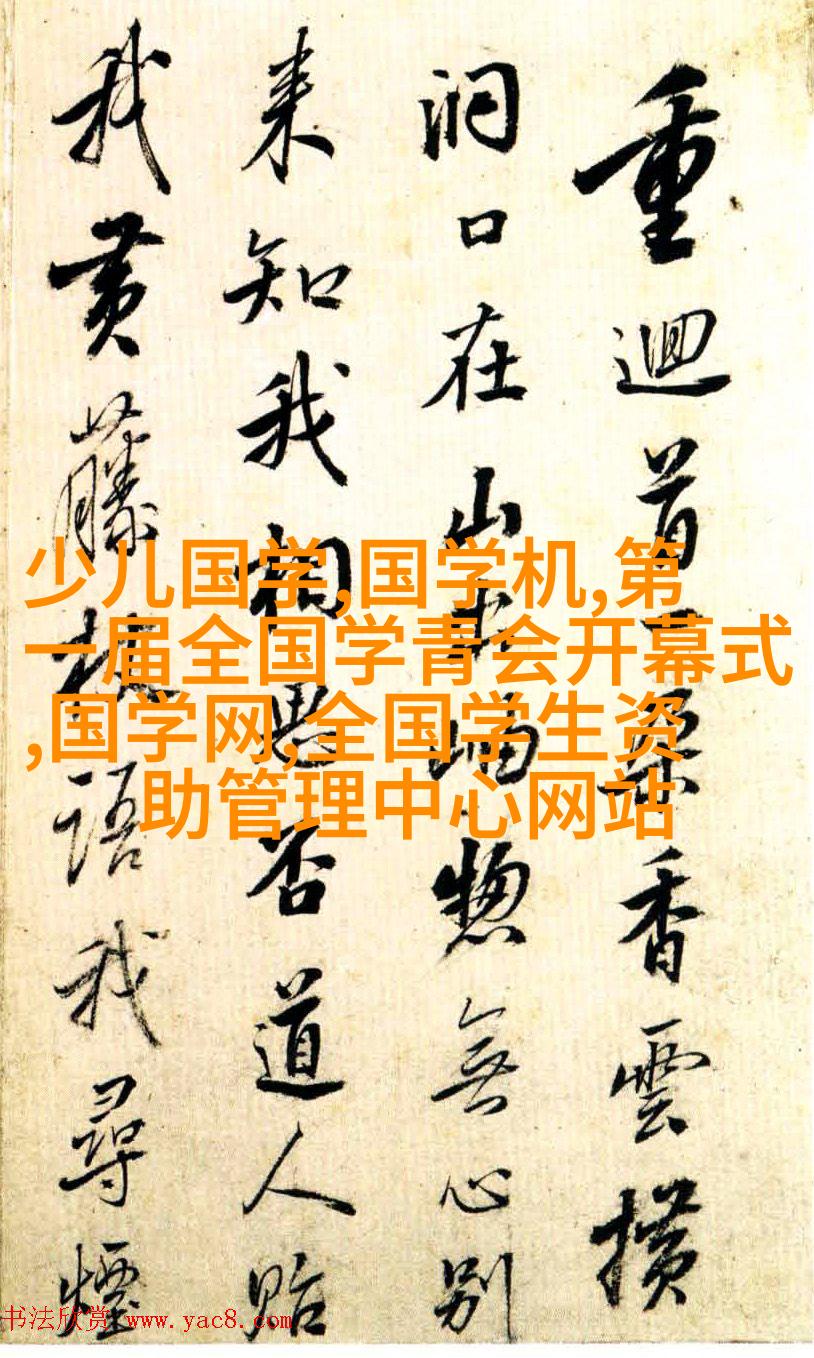 重迴首一香雲
洞口在山惣無心别
来知我相愚否道人貽
我黄藤杖語我尋煙
少儿国学,国学机,第
一届全国学青会开幕式
,国学网,全国学生资
助管理中心网站
书法欣赏 www.yac8.com